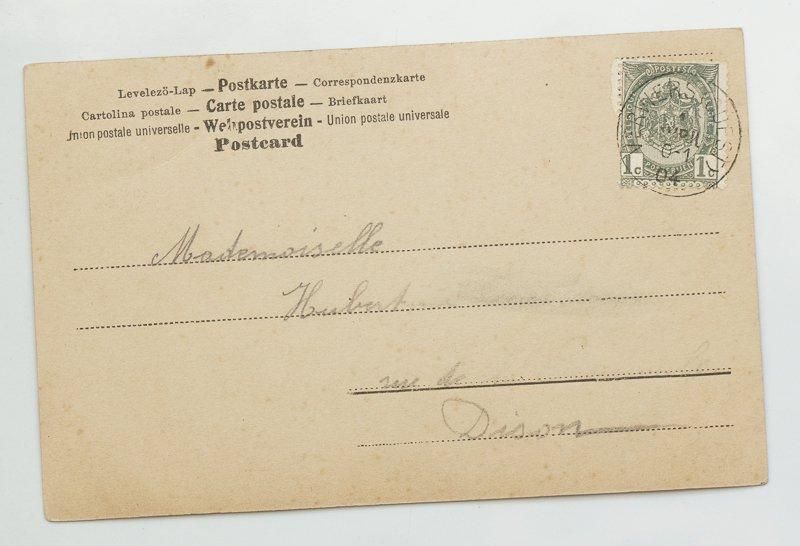 Levelezö-Lap — Postkarte — Correspondenzkarte
Cartolina postale — Carte postale — Briefkaart
Union postale universelle - Weltpostverein - Union postale universale
Postcard
POSTES
1c 1c
VERVIERS OUEST
1
AVRIL
04
Mademoiselle
Hubert
rue de
Dison